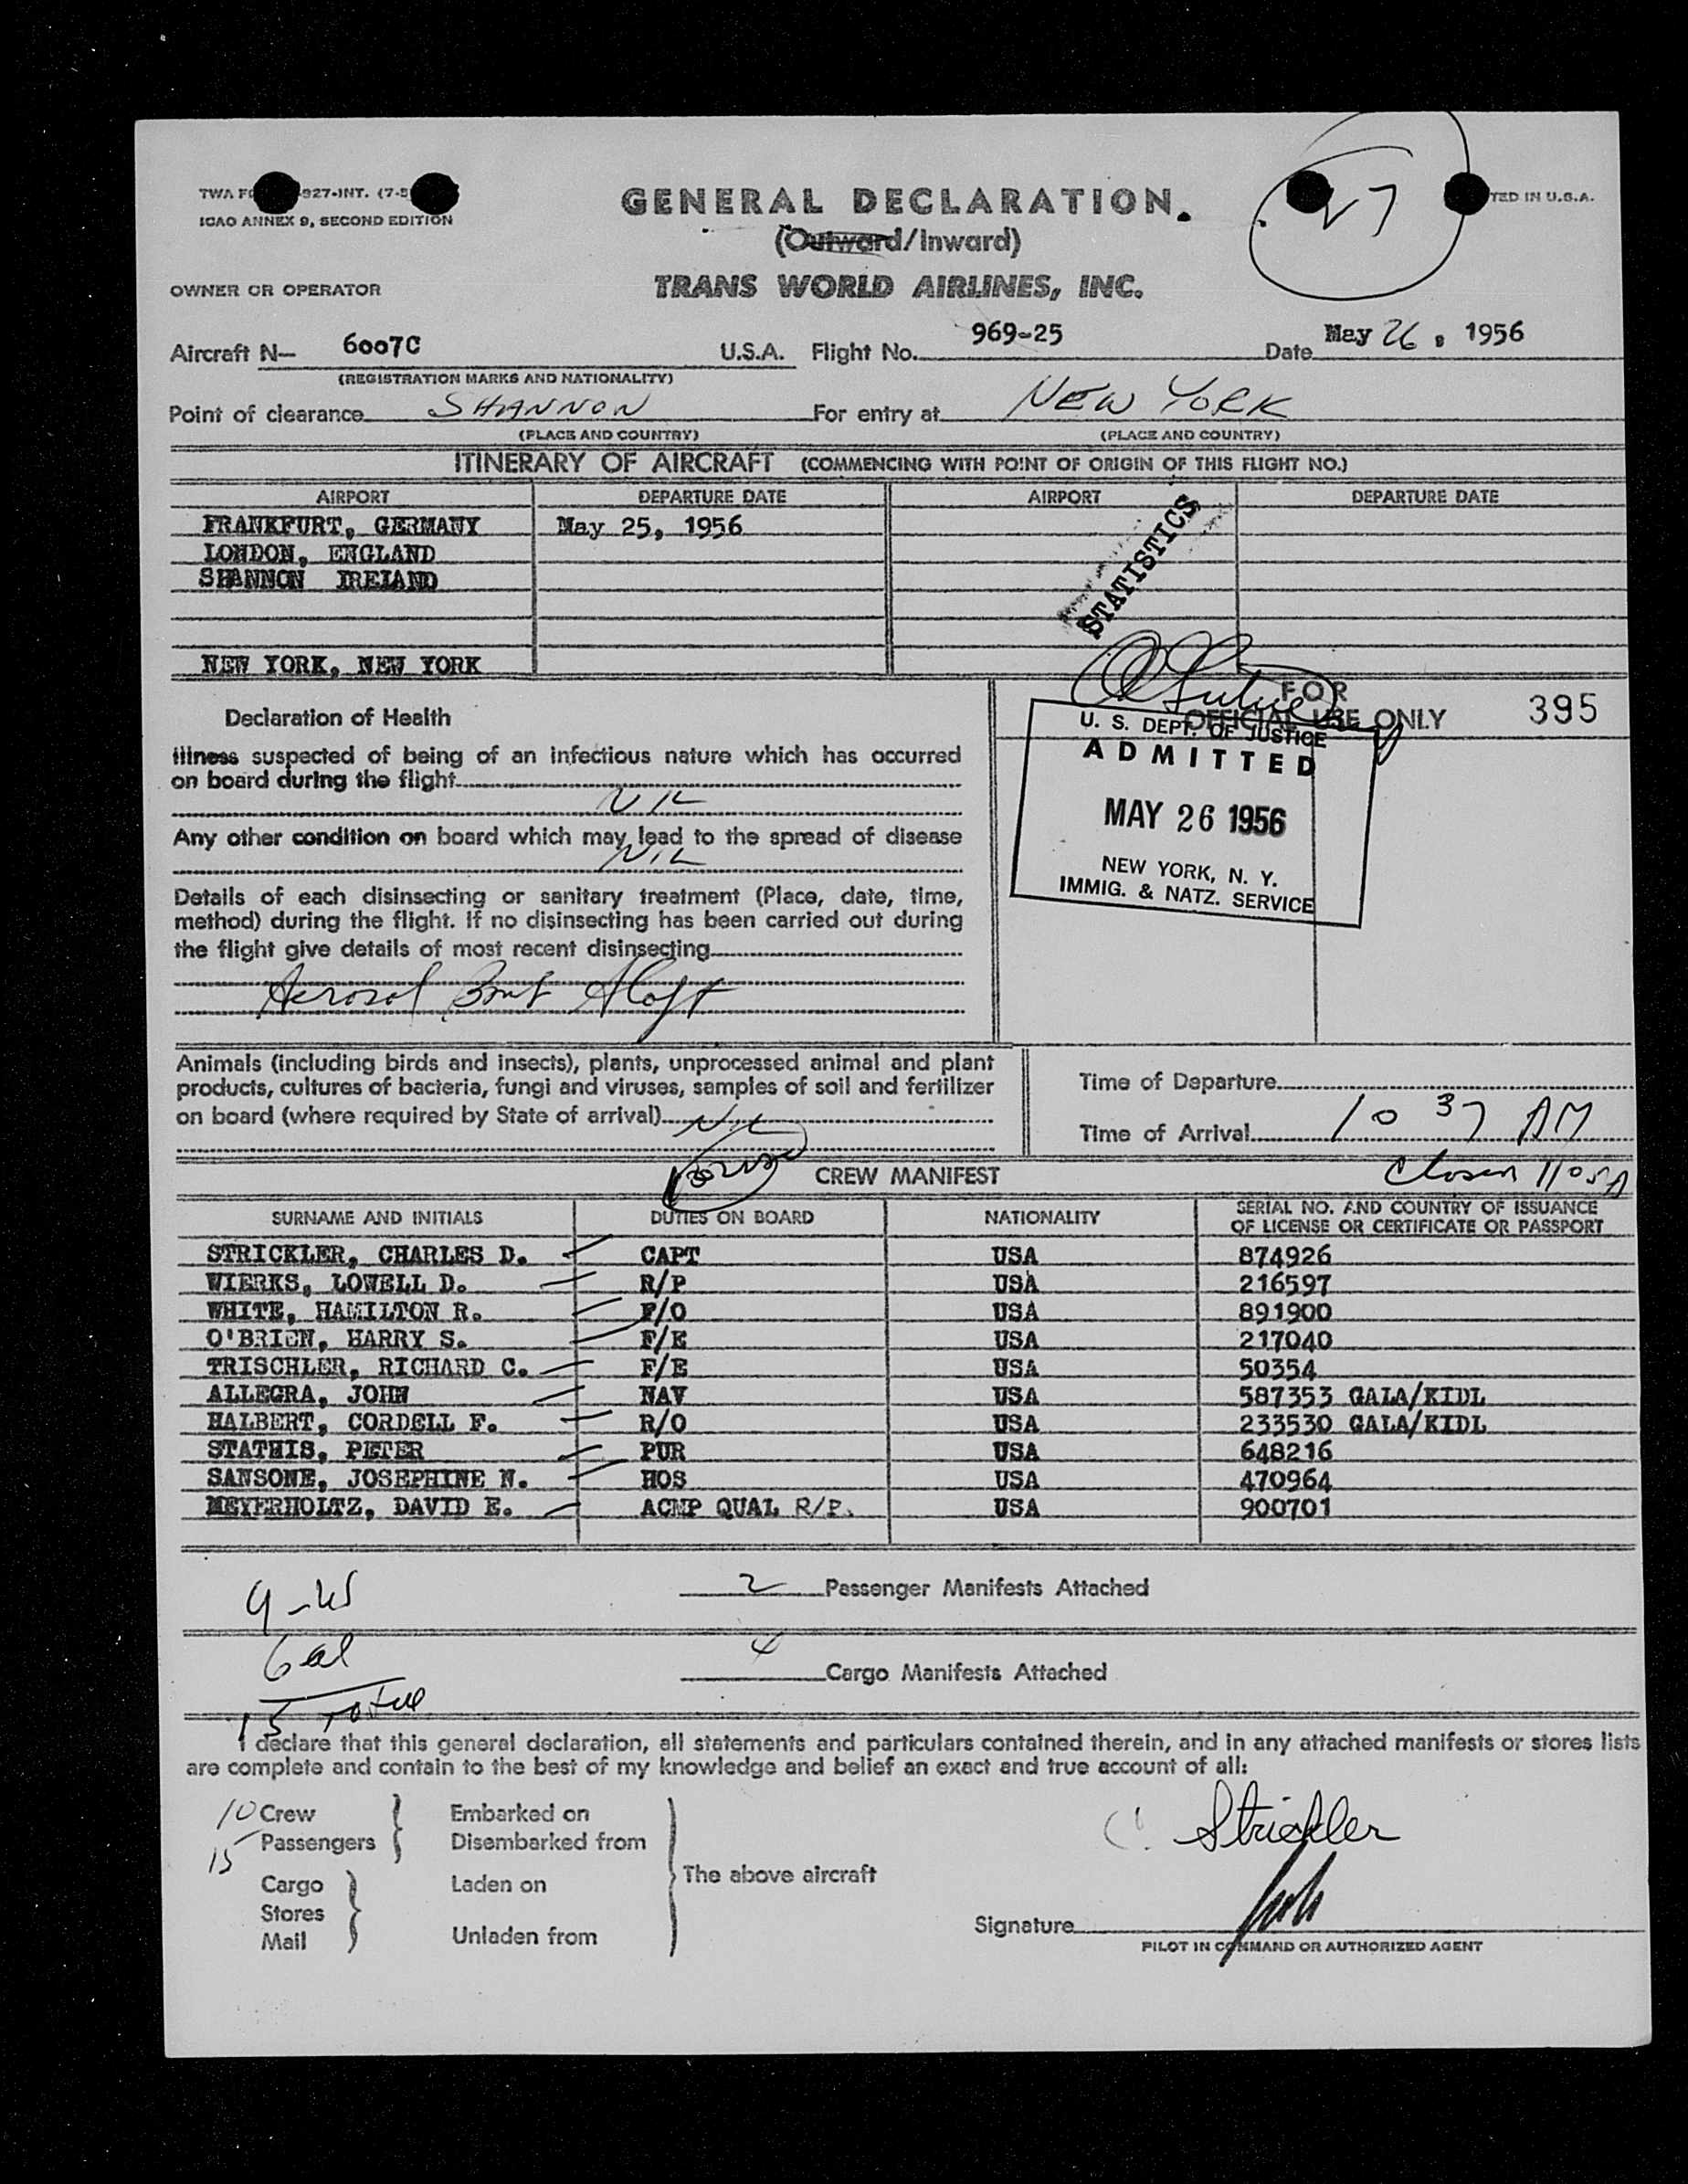 TWA F 927-INT. (7-5
ICAO ANNEX 9, SECOND EDITION
GENERAL DECLARATION.
TED IN U.S.A.
(Outward/Inward)
OWNER OR OPERATOR
TRANS WORLD AIRLINES, INC.
Aircraft N— 6007C U.S.A. Flight No. 969-25 Date May 26, 1956
(REGISTRATION MARKS AND NATIONALITY)
Point of clearance SHANNON For entry at NEW YORK
(PLACE AND COUNTRY) (PLACE AND COUNTRY)
ITINERARY OF AIRCRAFT (COMMENCING WITH POINT OF ORIGIN OF THIS FLIGHT NO.)
AIRPORT DEPARTURE DATE AIRPORT DEPARTURE DATE
FRANKFURT, GERMANY May 25, 1956
LONDON, ENGLAND
SHANNON IRELAND
STATISTICS
NEW YORK, NEW YORK
Declaration of Health
FOR
OFFICIAL USE ONLY 395
U. S. DEPT. OF JUSTICE
ADMITTED
MAY 26 1956
NEW YORK, N. Y.
IMMIG. & NATZ. SERVICE
Illness suspected of being of an infectious nature which has occurred
on board during the flight
NIL
Any other condition on board which may lead to the spread of disease
NIL
Details of each disinsecting or sanitary treatment (Place, date, time,
method) during the flight. If no disinsecting has been carried out during
the flight give details of most recent disinsecting
Aerosol Bomb Aloft
Animals (including birds and insects), plants, unprocessed animal and plant
products, cultures of bacteria, fungi and viruses, samples of soil and fertilizer
on board (where required by State of arrival) NIL
Time of Departure
Time of Arrival 10 37 AM
CREW MANIFEST
Closed 1105A
SURNAME AND INITIALS DUTIES ON BOARD NATIONALITY SERIAL NO. AND COUNTRY OF ISSUANCE
OF LICENSE OR CERTIFICATE OR PASSPORT
STRICKLER, CHARLES D. CAPT USA 874926
WIERKS, LOWELL D. R/P USA 216597
WHITE, HAMILTON R. F/O USA 891900
O'BRIEN, HARRY S. F/E USA 217040
TRISCHLER, RICHARD C. F/E USA 50354
ALLEGRA, JOHN NAV USA 587353 GALA/KIDL
HALBERT, CORDELL F. R/O USA 233530 GALA/KIDL
STATHIS, PETER PUR USA 648216
SANSONE, JOSEPHINE N. HOS USA 470964
MEYERHOLTZ, DAVID E. ACMP QUAL R/P. USA 900701
2 Passenger Manifests Attached
6 al
4 Cargo Manifests Attached
15 Total
I declare that this general declaration, all statements and particulars contained therein, and in any attached manifests or stores lists
are complete and contain to the best of my knowledge and belief an exact and true account of all:
10 Crew Embarked on
15 Passengers Disembarked from
The above aircraft
Cargo Laden on
Stores
Mail Unladen from
C. Strickler
Signature
PILOT IN COMMAND OR AUTHORIZED AGENT